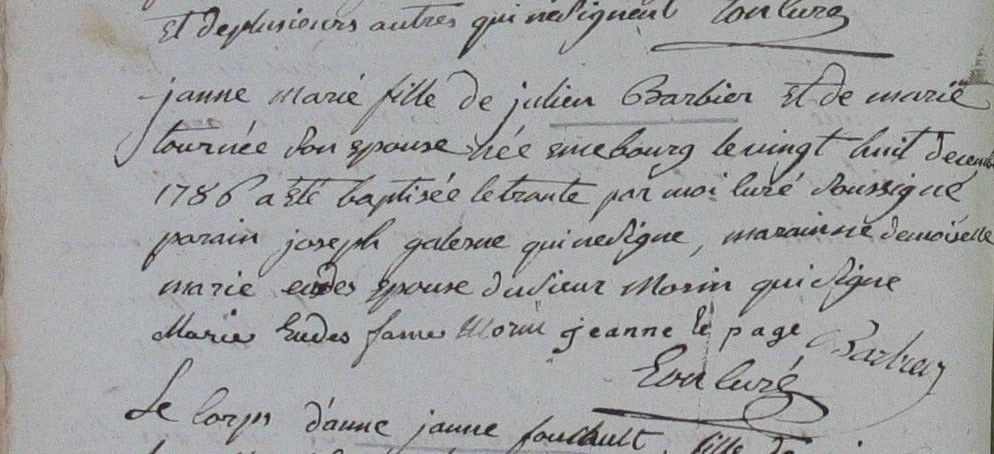 Et de plusieurs autres qui ne signent Zon curé
janne marie fille de julien Barbier Et de marie
tournée son epouse née en ce bourg le vingt huit decembre
1786 a été baptisée le trante par moi curé soussigné
parain joseph galerne qui ne signe, marainne demoiselle
marie eudes epouse du sieur Morin qui signe
Marie Eudes fame Morin jeanne le page Barbier
Zon curé
Le corps d'anne janne foucault, fille de